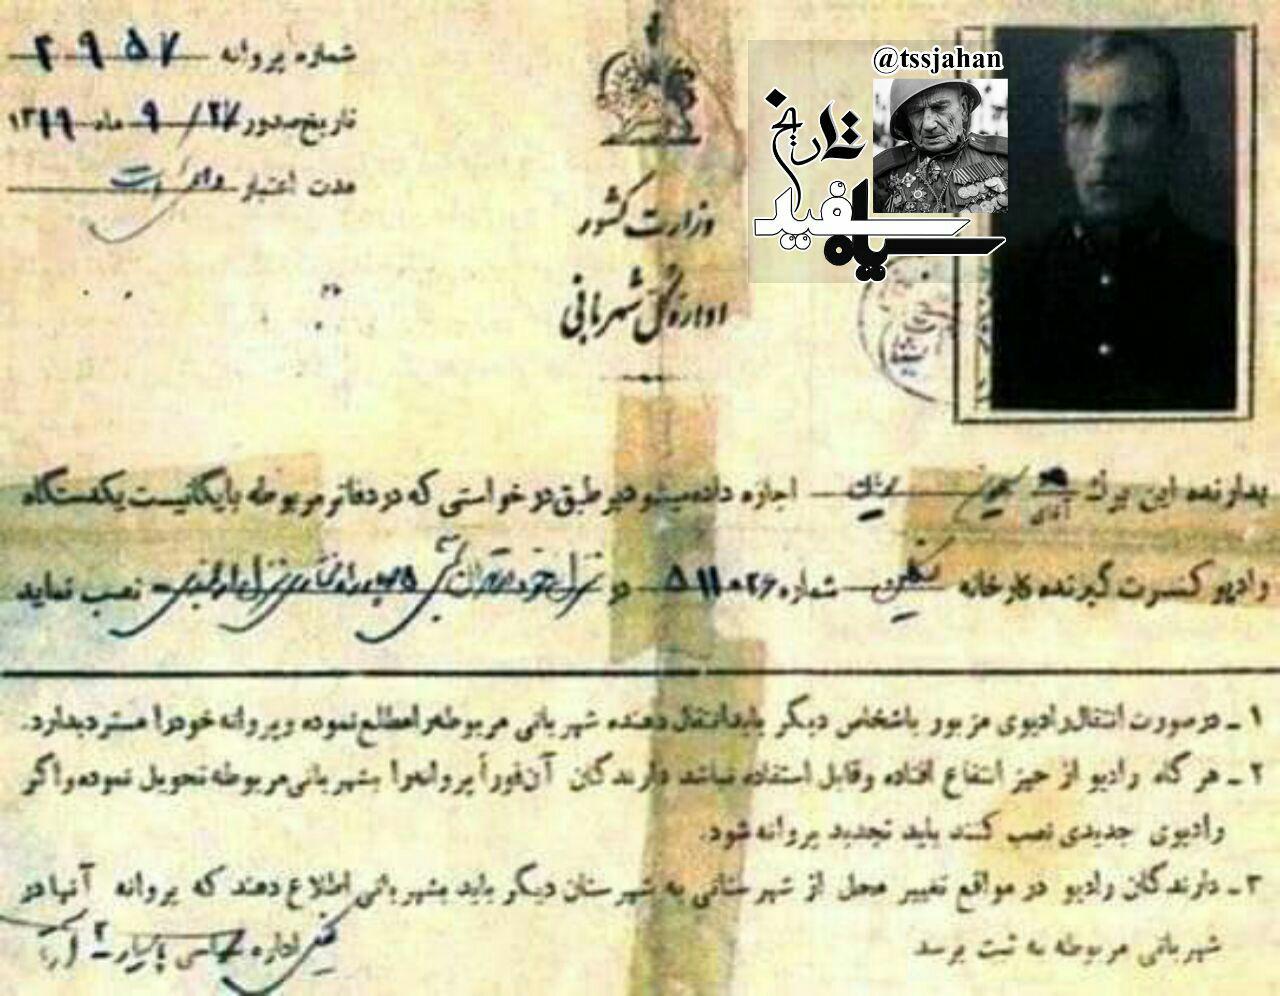 شماره پروانه ۲۹۵۷
تاریخ صدور ۲۷/ ۹ ماه ۱۳۱۹
مدت اعتبار
وزارت کشور
اداره کل شهربانی
@tssjahan
تاریخ
سیاه سفید
بدارنده این برگ آقای اجازه داده میشود بر طبق درخواستی که در دفاتر مربوطه بایگانیست یکدستگاه
رادیو کنسرت گیرنده کارخانه شماره ۵۱۱۰۲۶ در نصب نماید
۱ - در صورت انتقال رادیوی مزبور باشخاص دیگر باید انتقال دهنده شهربانی مربوطه را مطلع نموده و پروانه خود را مسترد بدارد.
۲ - هر گاه رادیو از حیز انتفاع افتاده و قابل استفاده نباشد دارندگان آن فوراً پروانه را بشهربانی مربوطه تحویل نموده و اگر
رادیوی جدیدی نصب کنند باید تجدید پروانه شود.
۳ - دارندگان رادیو در مواقع تغییر محل از شهرستانی به شهرستان دیگر باید بشهربانی اطلاع دهند که پروانه آنها در
شهربانی مربوطه به ثبت برسد
اداره